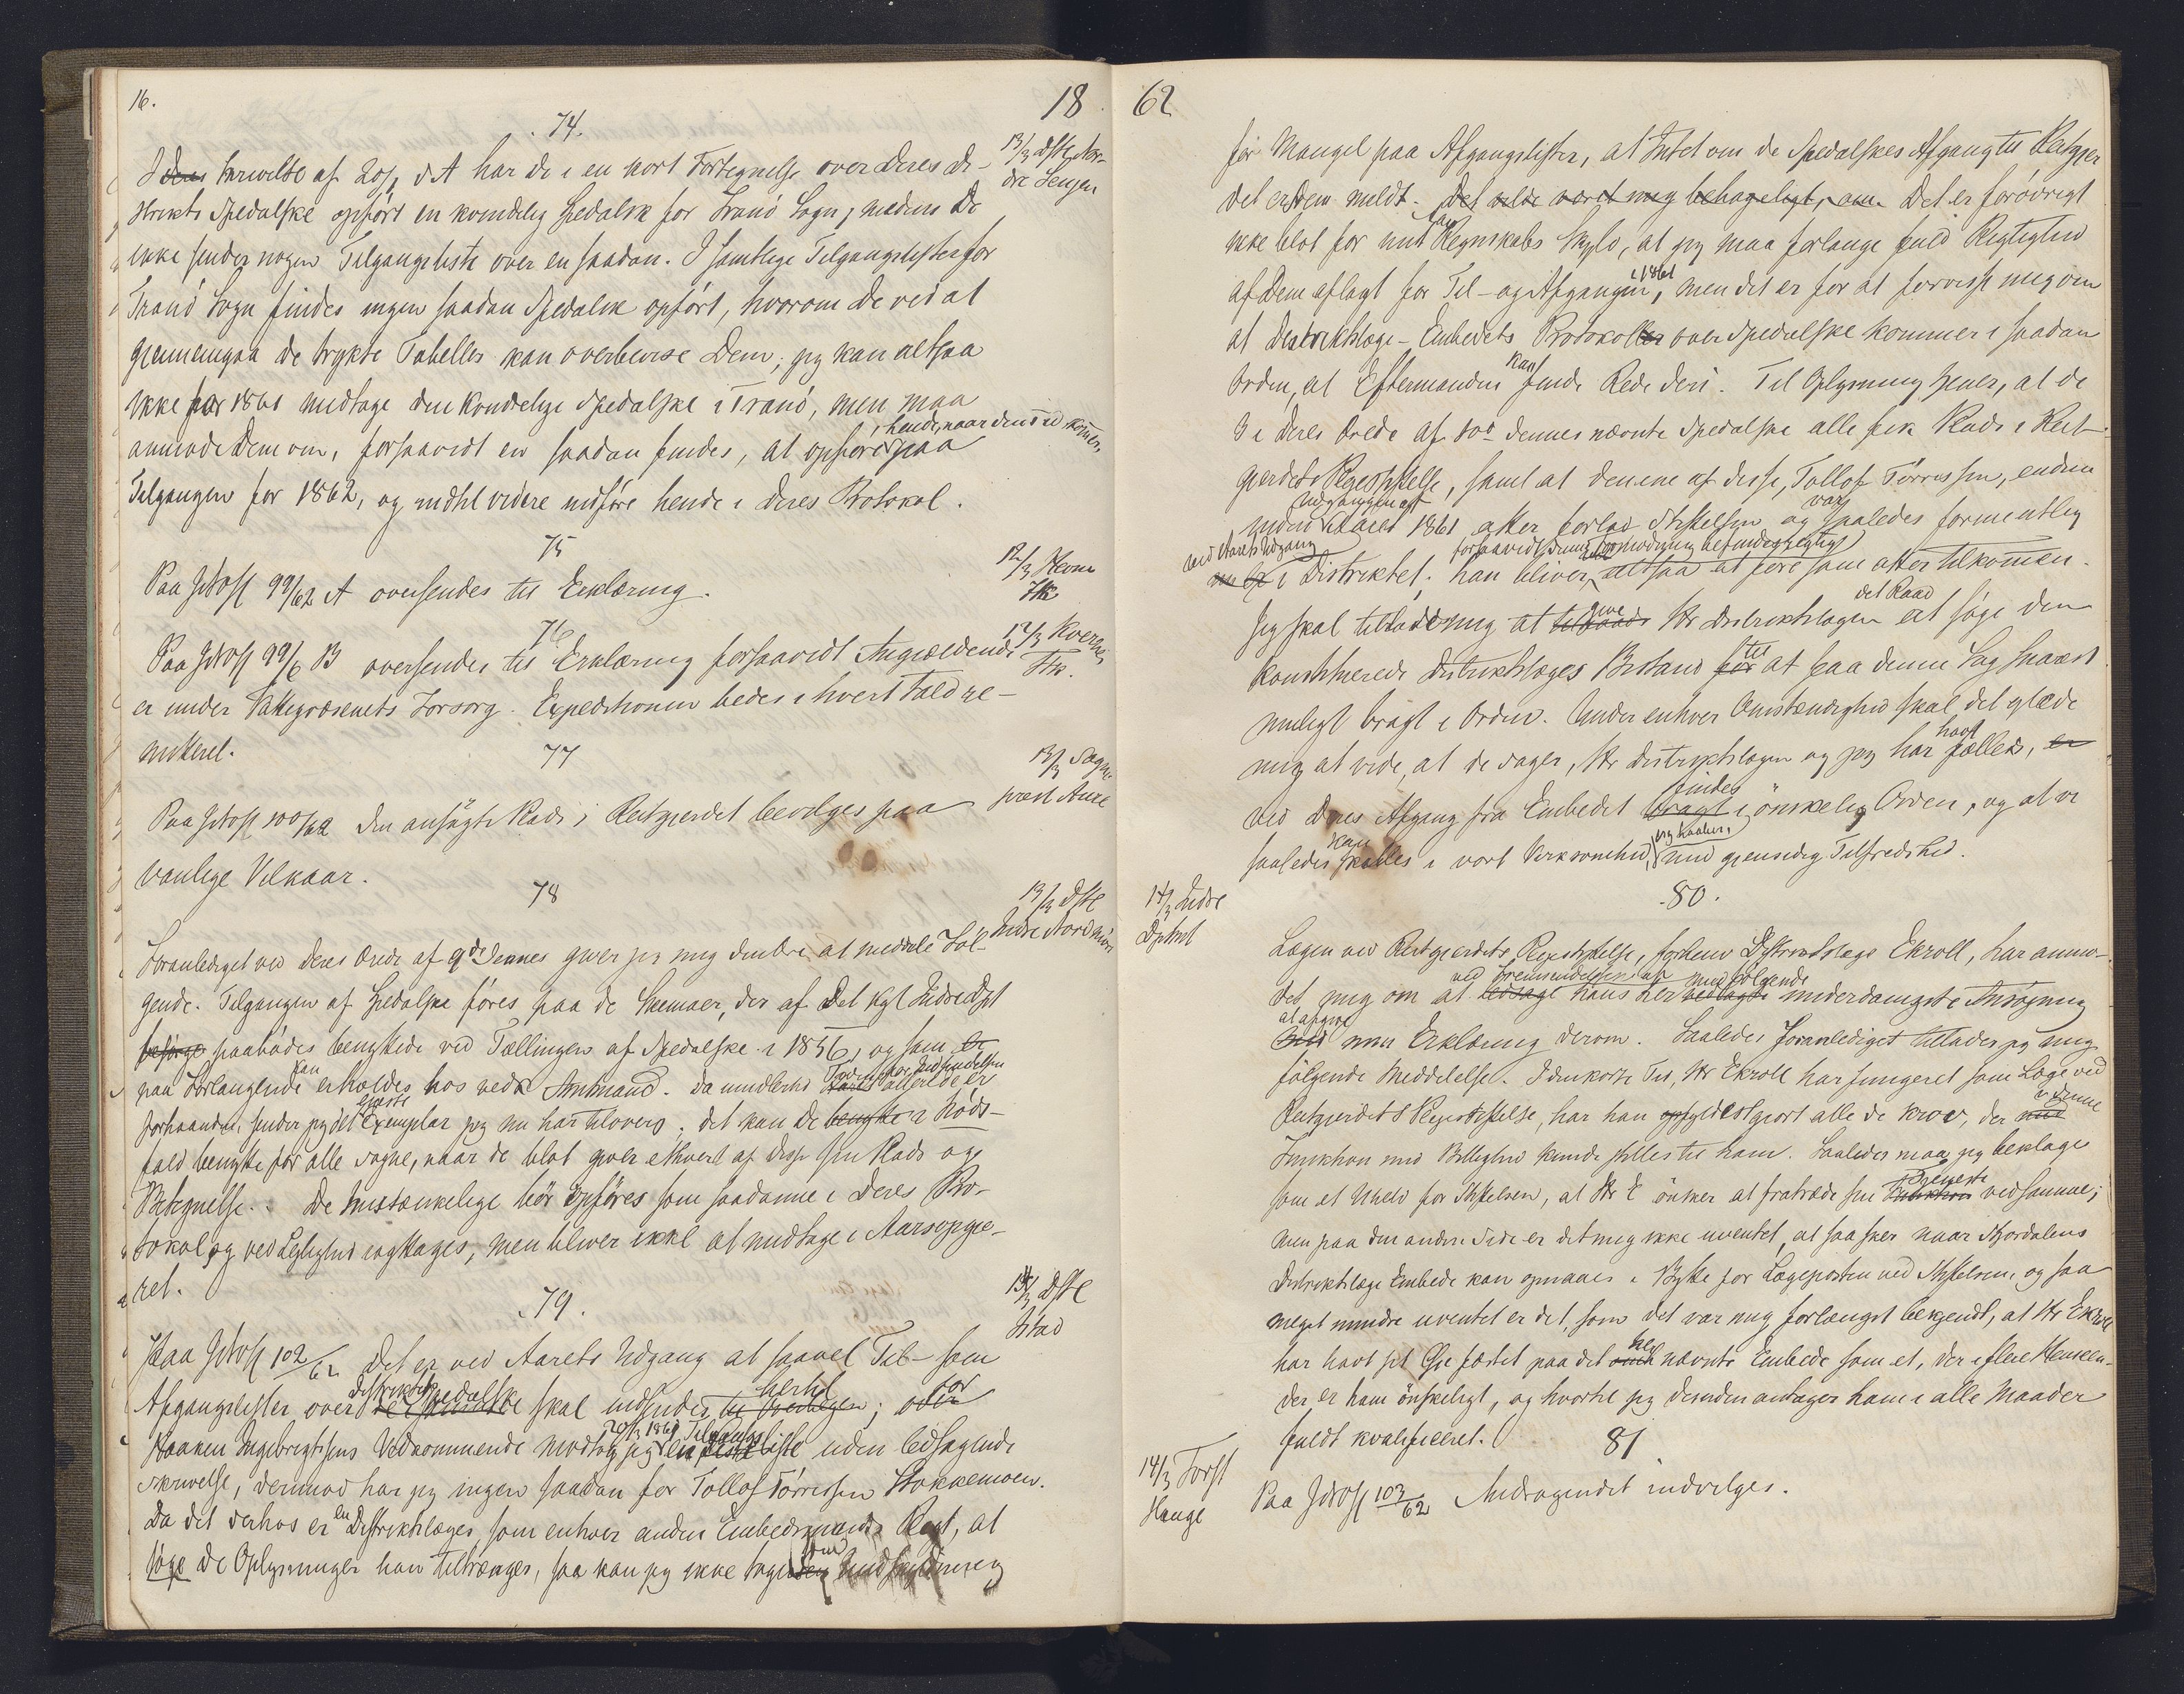 16.
18
74.
13/3 Dstl Nor-
dre Senjen
I Skrivelse af 20/2 d A har De i en kort Fortegnelse over Deres Di-
strikts Spedalske opført en kvindelig Spedalsk for Tranø Sogn, medens De
ikke sender nogen Tilgangsliste over en saadan. I samtlige Tilgangslister for
Tranø Sogn findes ingen saadan Spedalsk opført, hvorom De ved at
gjennemgaa de trykte Tabeller kan overbevise Dem; jeg kan altsaa
ikke for 1861 medtage den kvindelige Spedalske i Tranø, men maa
anmode Dem om, forsaavidt en saadan findes, at opføre hende, naar den Tid kommer, paa
Tilgangen for 1862, og indtil videre indføre hende i Deres Protokol.
75
12/3
Paa JNo 99/62 A oversendes til Erklæring.
76
12/3 Kvernes
Fk.
Paa JNo 99/6 B oversendes til Erklæring forsaavidt Angjældende
er under Fattigvæsenets Forsorg. Expeditionen bedes i hvert Fald re-
mitteret.
77
13/3 Sogne
præst Aure
Paa JNo 100/62 den ansøgte Plads i Reitgjerdet bevilges paa
vanlige Vilkaar.
78
13/3 Dstl
Indre Nordmør
Foranlediget ved Deres Brev af 9de dennes giver jeg mig den Ære at meddele Føl-
gende. Tilgangen af Spedalske føres paa de Skemaer, der af Det Kgl Indredpt
paabødes benyttede ved Tællingen af Spedalske i 1856, og som
paa Forlangende kan erholdes hos vedk Amtmand. Da imidlertid Tiden for Indsendelsen allerede er
forhaanden, sender jeg det eneste Exemplar jeg nu har tilovers; det kan De i Nøds-
fald benytte for alle Sogne, naar De blot giver ethvert af disse sin Plads og
Betegnelse. De Mistænkelige bør opføres som saadanne i Deres Pro-
tokol og ved Leilighed iagttages, men bliver ikke at medtage i Aarsopgjø-
ret.
79.
13/3 Dstl
Ifstad
Paa JNo 102/62 Det er ved Aarets Udgang at saavel Til- som
Afgangslister over Distriktets Spedalske skal indsendes hertil; for
Haaken Ingebrigtsens Vedkommende modtog jeg 20/3 1861 Tilgangsliste uden ledsagende
Skrivelse, derimod har jeg ingen saadan for Tollof Tørrissen Stokkemoen.
Da det derhos er en Distriktslæges, som enhver anden Embedsmands Pligt, at
søge de Oplysninger han tiltrænger, saa kan jeg ikke tage som Undskyldning
62
for Mangel paa Afgangslister, at Intet om de Spedalskes Afgang til Reitgjer
det er Dem meldt. Det vilde været mig behageligt, om Det er forøvrigt
ikke blot for mit Regnskabs Skyld, at jeg maa forlange fuld Rigtighed
af Dem aflagt for Til- og Afgangen i 1861, men det er for at forvisse mig om
at Distriktslæge-Embedets Protokoller over Spedalske kommer i saadan
Orden, at Eftermanden kan finde Rede deri. Til Oplysning tjener, at de
3 i Deres Brede af 10de dennes nævnte Spedalske alle fik Plads i Reit-
gjerdets Pleiestiftelse, samt at den ene af disse, Tollof Tørrissen, endnu
inden Udgangen af Aaret 1861 atter forlod Stiftelsen og var saaledes formentlig
ved Aarets Udgang i Distriktet; han bliver, forsaavidt denne Formodning befindes rigtig, at føre som atter tilkommen.
Jeg skal tillade mig at give Hr Distriktslægen det Raad at søge den
konstituerede Distriktslæges Bistand til at faa denne Sag snarest
muligt bragt i Orden. Under enhver Omstændighed skal det glæde
mig at vide, at de Sager, Hr Distriktslægen og jeg har havt fælles,
ved Deres Afgang fra Embedet findes i ønskelig Orden, og at vi
saaledes kan skilles i vort Verksomhed, jeg haaber, med gjensidig Tilfredshed.
80.
14/3 Indre
Dptmt
Lægen ved Reitgjerdets Pleiestiftelse, forhenv Distriktslæge Ekroll, har anmo-
det mig om at ved Fremsendelsen af hans her medfølgende underdanigste Ansøgning
at afgive min Erklæring derom. Saaledes foranlediget tillader jeg mig
følgende Meddelelse. I den korte Tid, Hr Ekroll har fungeret som Læge ved
Reitgjerdets Pleiestiftelse, har han fyldestgjort alle de Krav, der i denne
Funktion med Billighed kunde stilles til ham. Saaledes maa jeg beklage
som et Uheld for Stiftelsen, at Hr E ønsker at fratræde sin Tjeneste ved samme;
men paa den anden Side er det mig ikke uventet, at saa sker naar Stjørdalens
Distriktslæge Embede kan opnaaes i Bytte for Lægeposten ved Stiftelsen, og saa
meget mindre uventet er det, som det var mig forlængst bekjendt, at Hr Ekroll
har havt sit Øie fæstet paa det her nævnte Embede som et, der i flere Henseen-
der er ham ønskeligt, og hvortil jeg desuden antager ham i alle Maader
fuldt kvalificeret.
81
14/3 Forst
Hauge
Paa JNo 103/62 Andragendet indvilges.